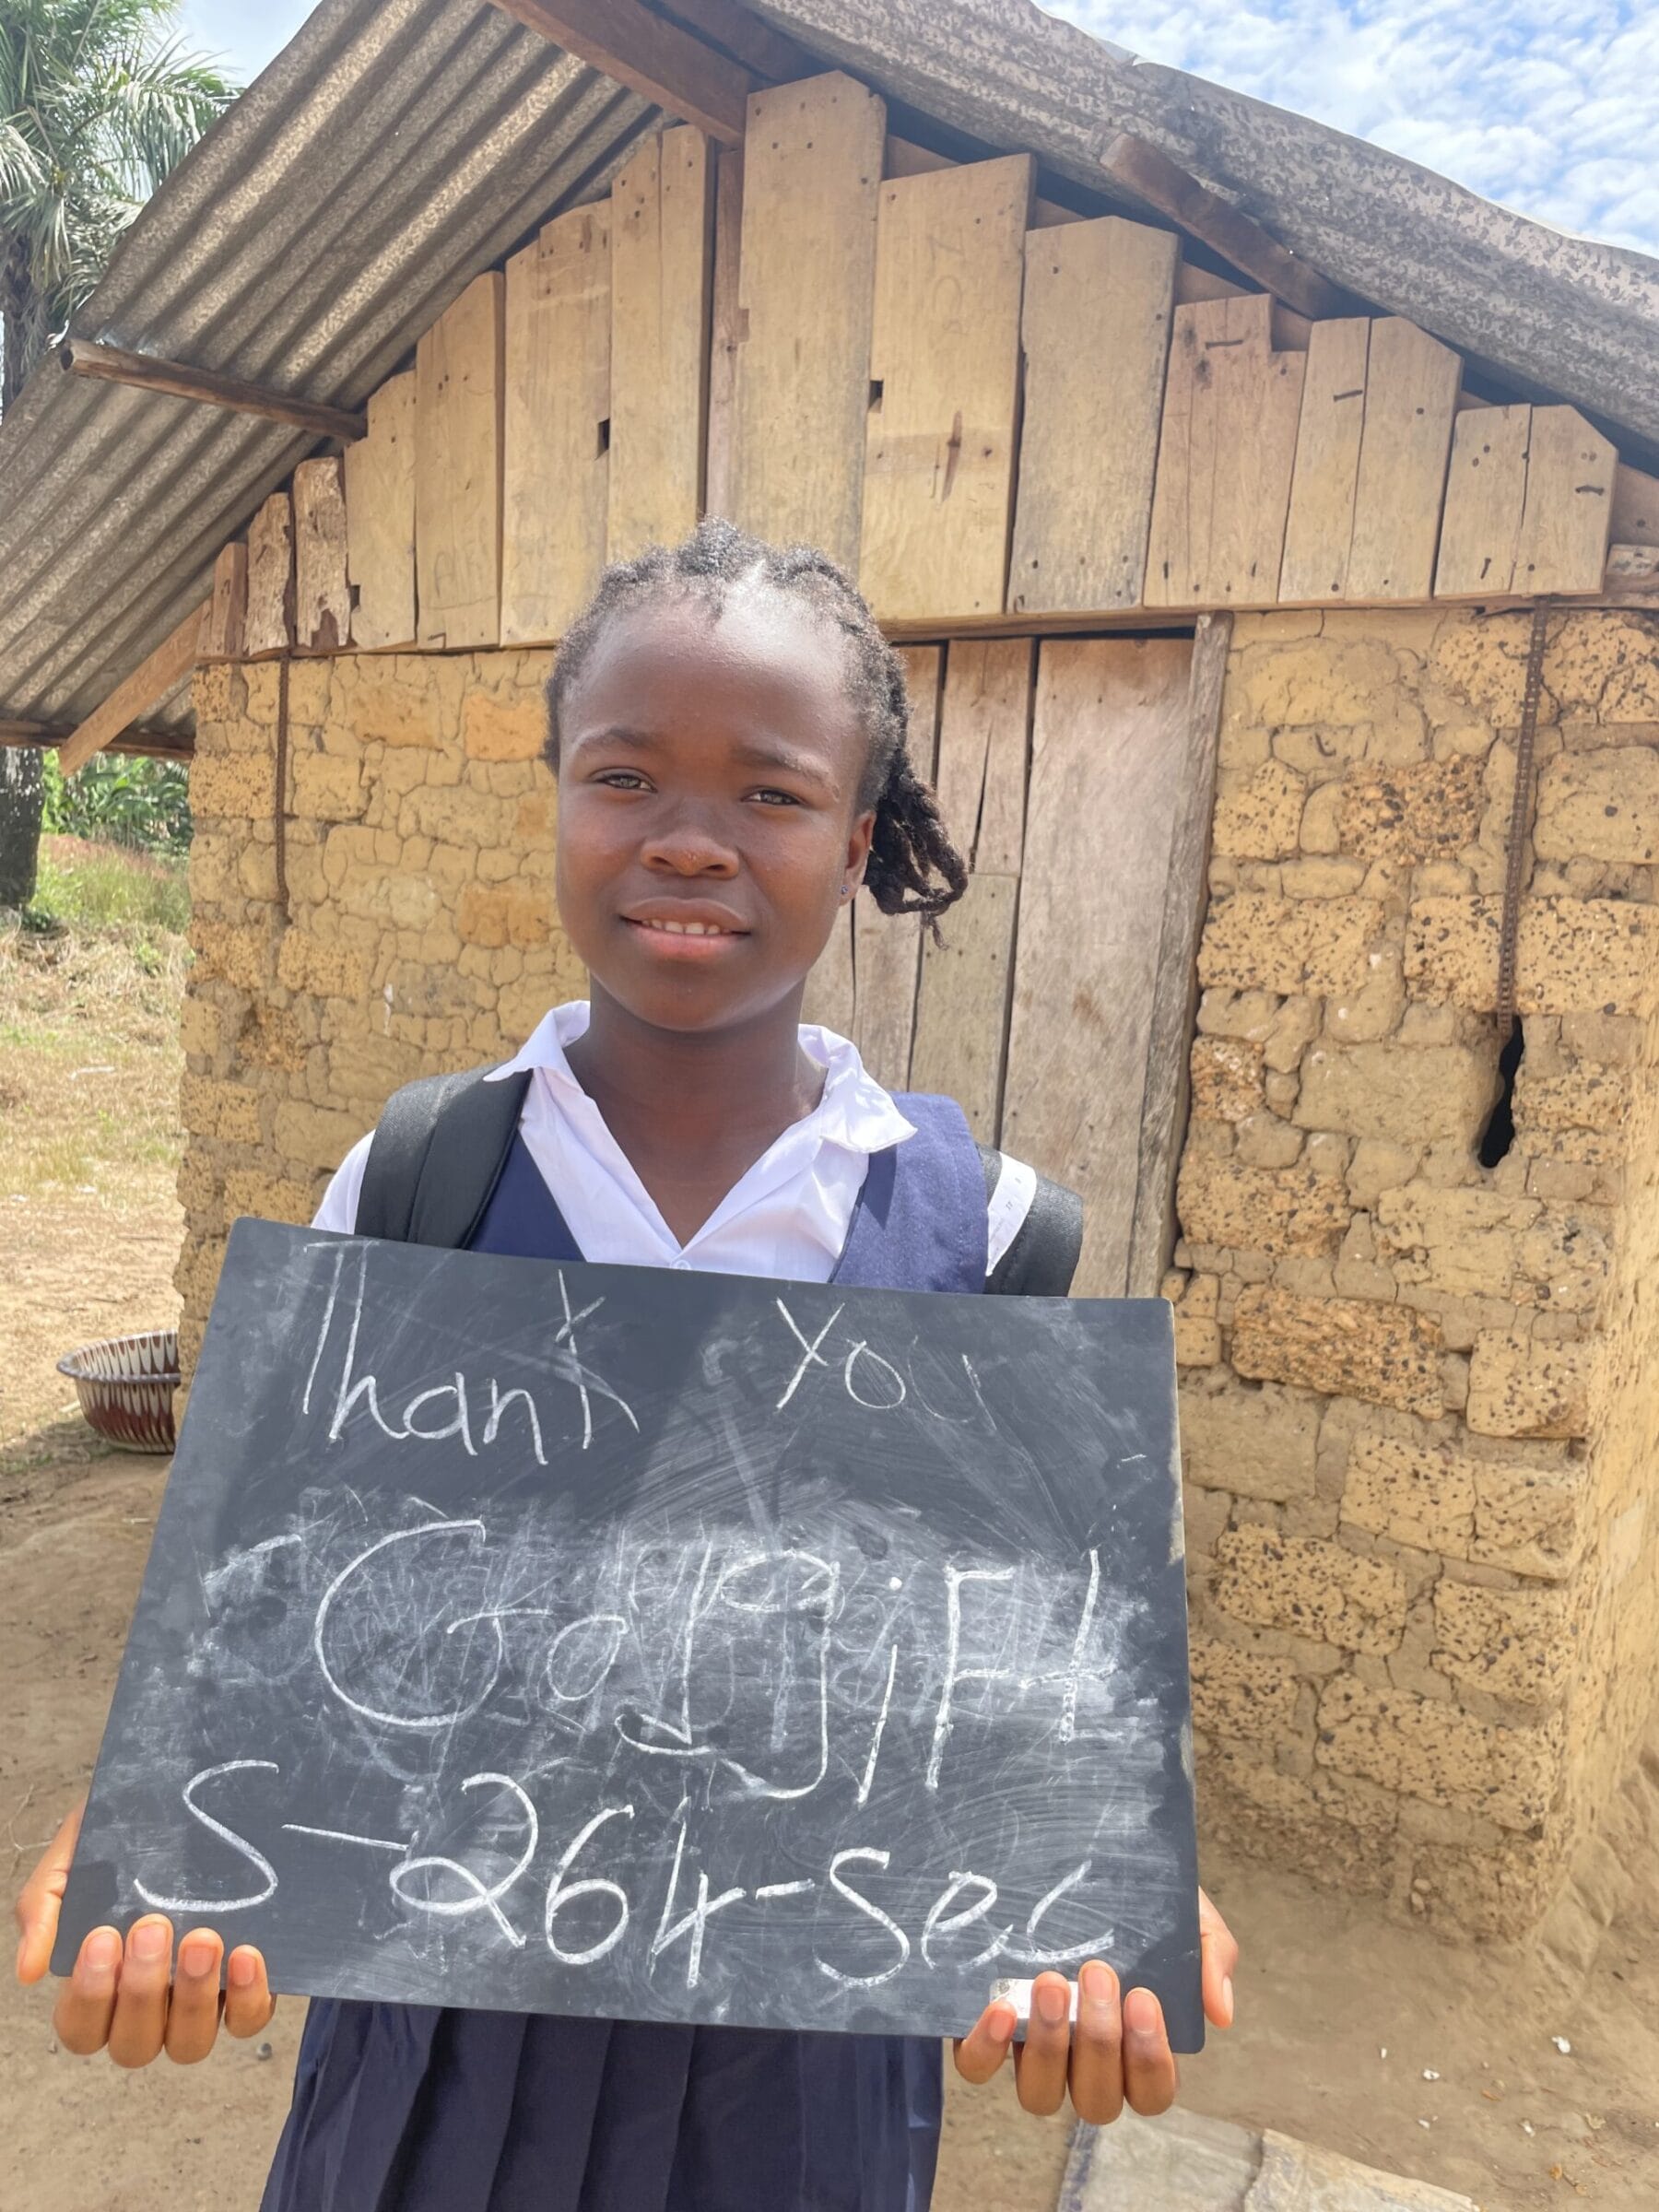 Thank You
GodgiFt
S-264-Sec